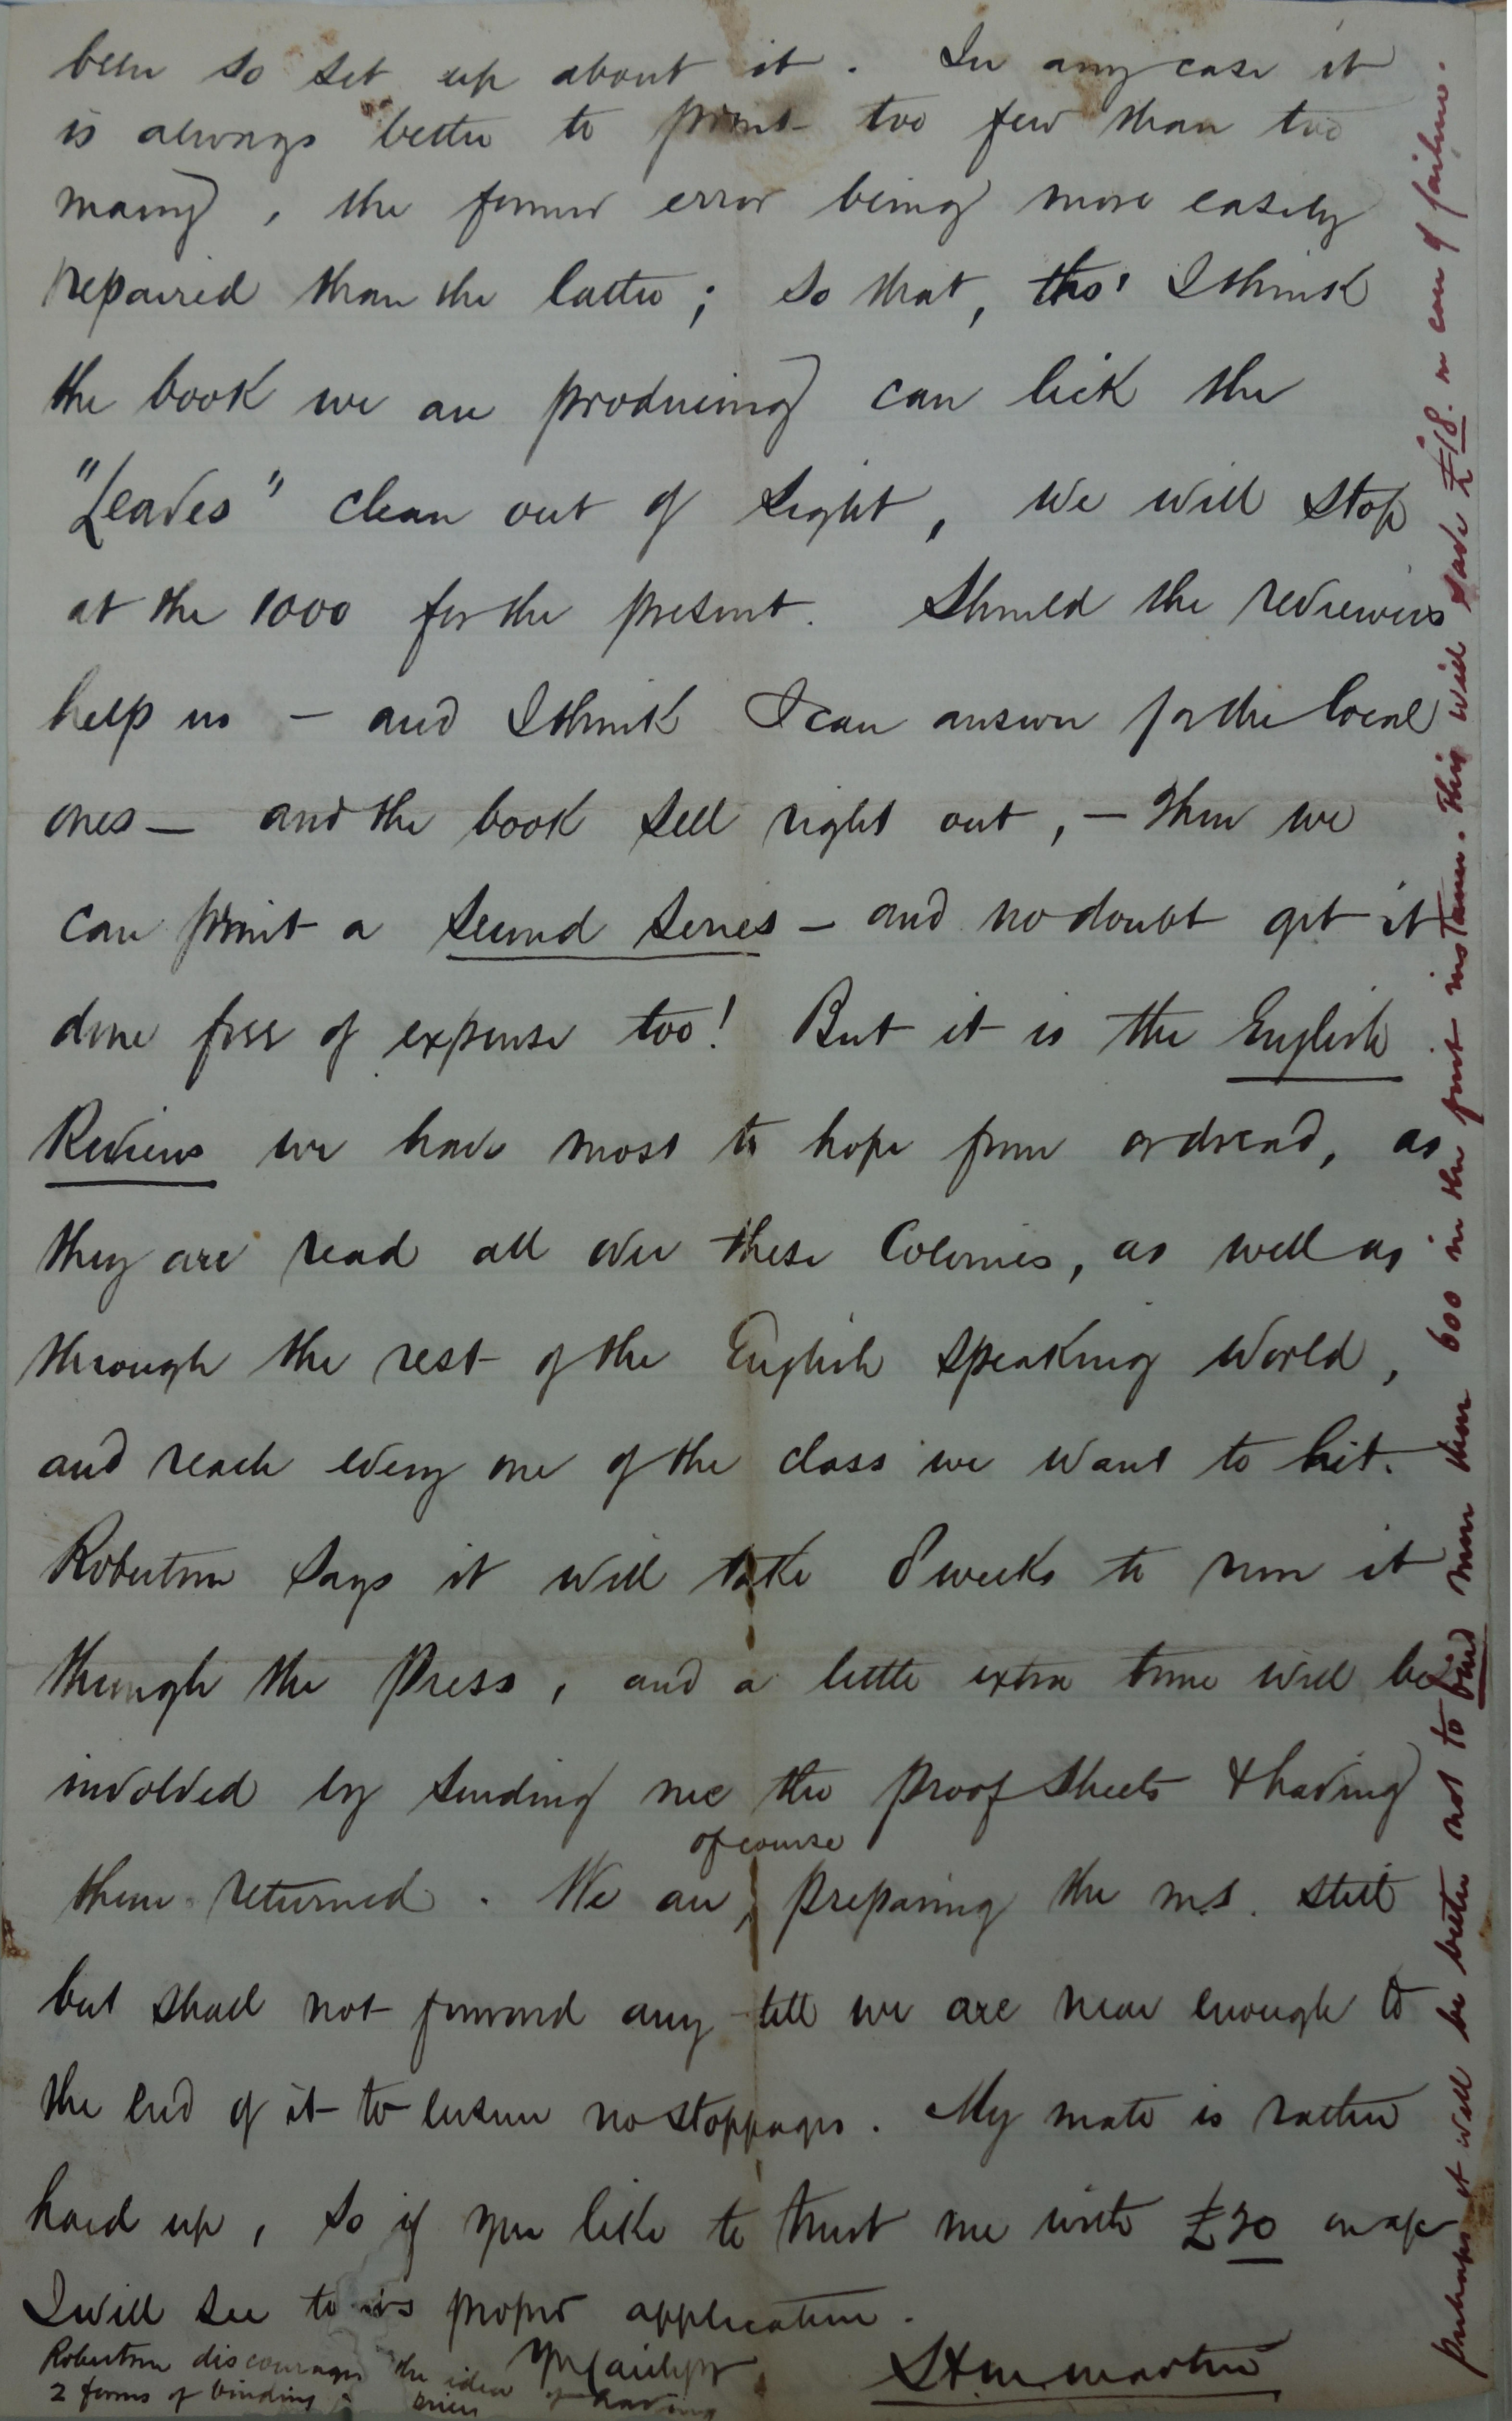 been so set up about it. In any case it
is always better to print too few than too
many, the former error being more easily
repaired than the latter; so that, tho' I think
the book we are producing can lick the
"Leaves" clean out of sight, we will stop
at the 1000 for the present. Should the reviewers
help us – and I think I can answer for the local
ones – and the book sell right out, – then we
can print a second series – and no doubt get it
done free of expense too! But it is the English
Reviews we have most to hope from or dread, as
they are read all over these Colonies, as well as
through the rest of the English speaking World,
and reach every one of the class we want to hit.
Robertson says it will take 8 weeks to run it
through the Press, and a little extra time will be
involved by sending me the proof sheets & having
of course
them returned. We are, preparing the m.s. still
but shall not forward any till we are near enough to
the end of it to ensure no stoppages. My mate is rather
hard up, so if you like to trust me with on a/c
I will see to its proper application.
Robertson discourages the idea of having
2 forms of binding
perhaps it will be better not to bind more than 600 in the first instance. This will save £18. in case of failure.